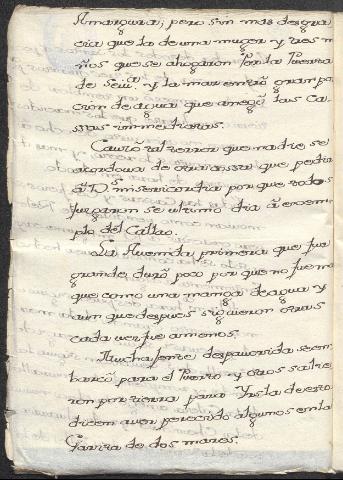 Amargura; pero sin mas desgra
cia que la de una muger y tres ni
ños que se ahogaron Por la Puerta
de Sevª. y la mar entró gran por
cion de agua que anegó las ca
sas inmediatas.
Causó tal terror que nadie se
acordava de otra cossa que pedir
á D.s misericordia por que todos
Jusgaron se ultimo dia á exem
plo del Callao.
La Avenida primera que fue
grande, duró poco por que no fue ma
que como una manga de agua y
aun que despues siguieron otras
cada vez fue a menos.
Mucha Jente despavorida se em
barcó para el Puerto y otros salie
ron por tierra para Ysla de esto
dicen aver perecido algunos en la
Gavita de dos mares.